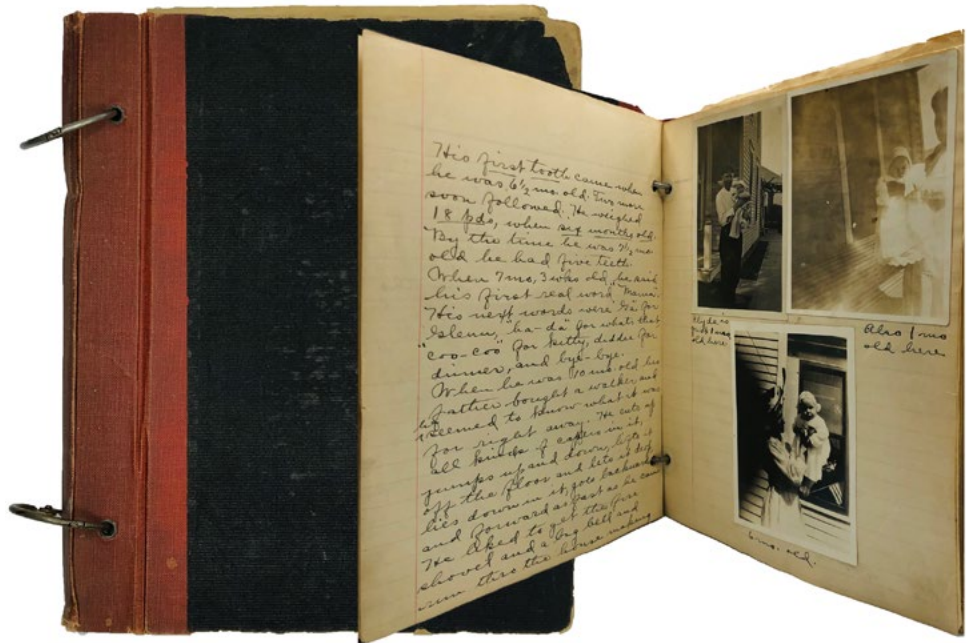 His first tooth came when
he was 6½ mo. old. Two more
soon followed. He weighed
18 pds, when six months old.
By the time he was 7½ mo
old he had five teeth.
When 7 mo, 3 wks old, he said
his first real word "Mama".
His next words were "Ga" for
Glenn, "ba-da" for whats that
"coo-coo" for kitty, didder for
dinner, and bye-bye.
When he was 10 mo. old his
father bought a walker and
he seemed to know what it was
for right away. He cuts up
all kinds of capers in it,
jumps up and down, lifts it
off the floor and lets it drop
lies down in it, goes backward
and forward as fast as he can
He liked to get the fire
shovel and a big bell and
run thro the house making
just 1 mo
old here
Also 1 mo
old here
6 mo. old.